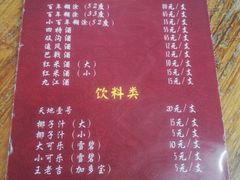 百年糊涂(52度) 80元/支
百年糊涂(33度) 65元/支
小百年糊涂(52度) 15元/支
四特酒 元/支
双沟酒 元/支
追风酒 元/支
巴戟酒 元/支
红米酒(大) 元/支
红米酒(小) 元/支
九江酒 元/支
饮料类
天地壹号 20元/支
椰子汁(大) 15元/支
椰子汁(小) 5元/支
大可乐(雪碧) 10元/支
小可乐(雪碧) 5元/支
王老吉(加多宝) 5元/支